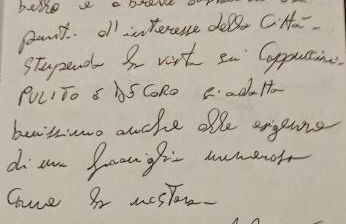 e a breve
punti d'interesse della Città -
Stupenda la vista sui Cappuccini -
PULITO E DECORO si adatta
benissimo anche alle esigenze
di una famiglia numerosa
come la nostra -